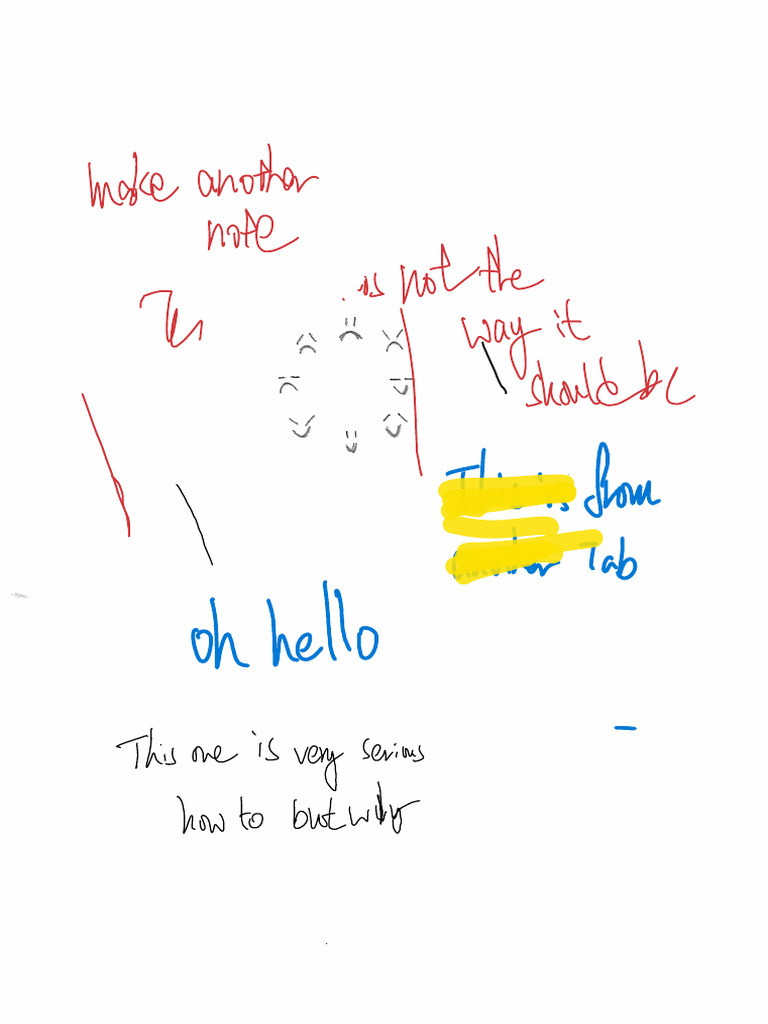 make another
note
is not the
way it
should be
This is from
another Tab
oh hello
This one is very serious
how to but why